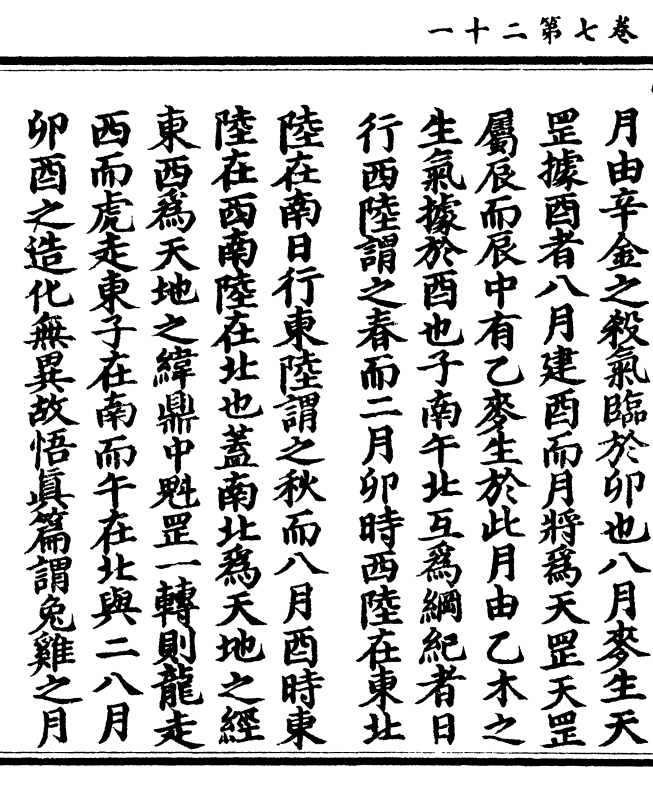 卷七第二十一
月由辛金之殺氣臨於卯也八月麥生天
罡據酉者八月建酉而月將爲天罡天罡
屬辰而辰中有乙麥生於此月由乙木之
生氣據於酉也子南午北互爲綱紀者日
行西陸謂之春而二月卯時西陸在東北
陸在南日行東陸謂之秋而八月酉時東
陸在西南陸在北也蓋南北爲天地之經
東西爲天地之緯鼎中魁罡一轉則龍走
西而虎走東子在南而午在北與二八月
卯酉之造化無異故悟眞篇謂兔雞之月